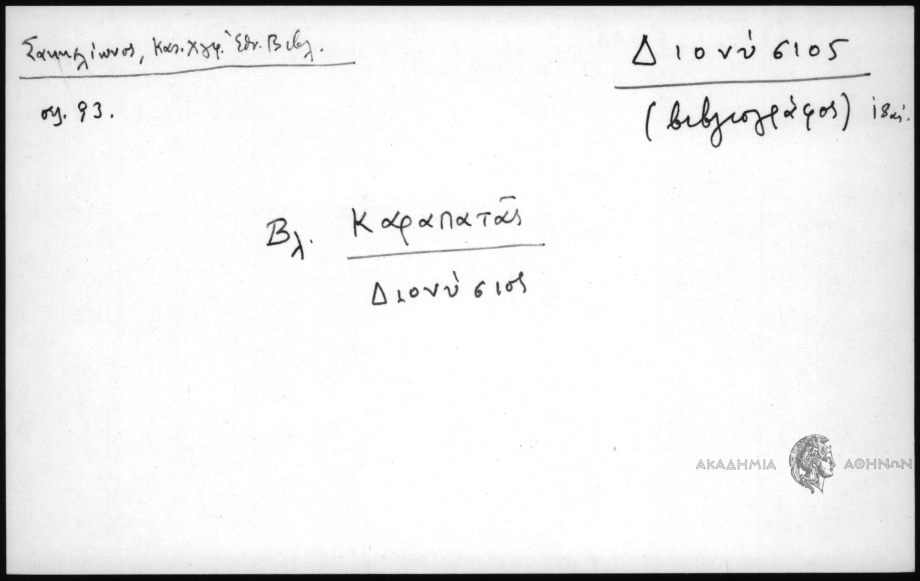 Σακκελίωνος, Κατ. Χγρ. Ἐθν. Βιβλ.
σελ. 93.
Διονύσιος
(βιβλιογράφος)
Βλ. Καραπατᾶς
Διονύσιος
ΑΚΑΔΗΜΙΑ ΑΘΗΝΩΝ